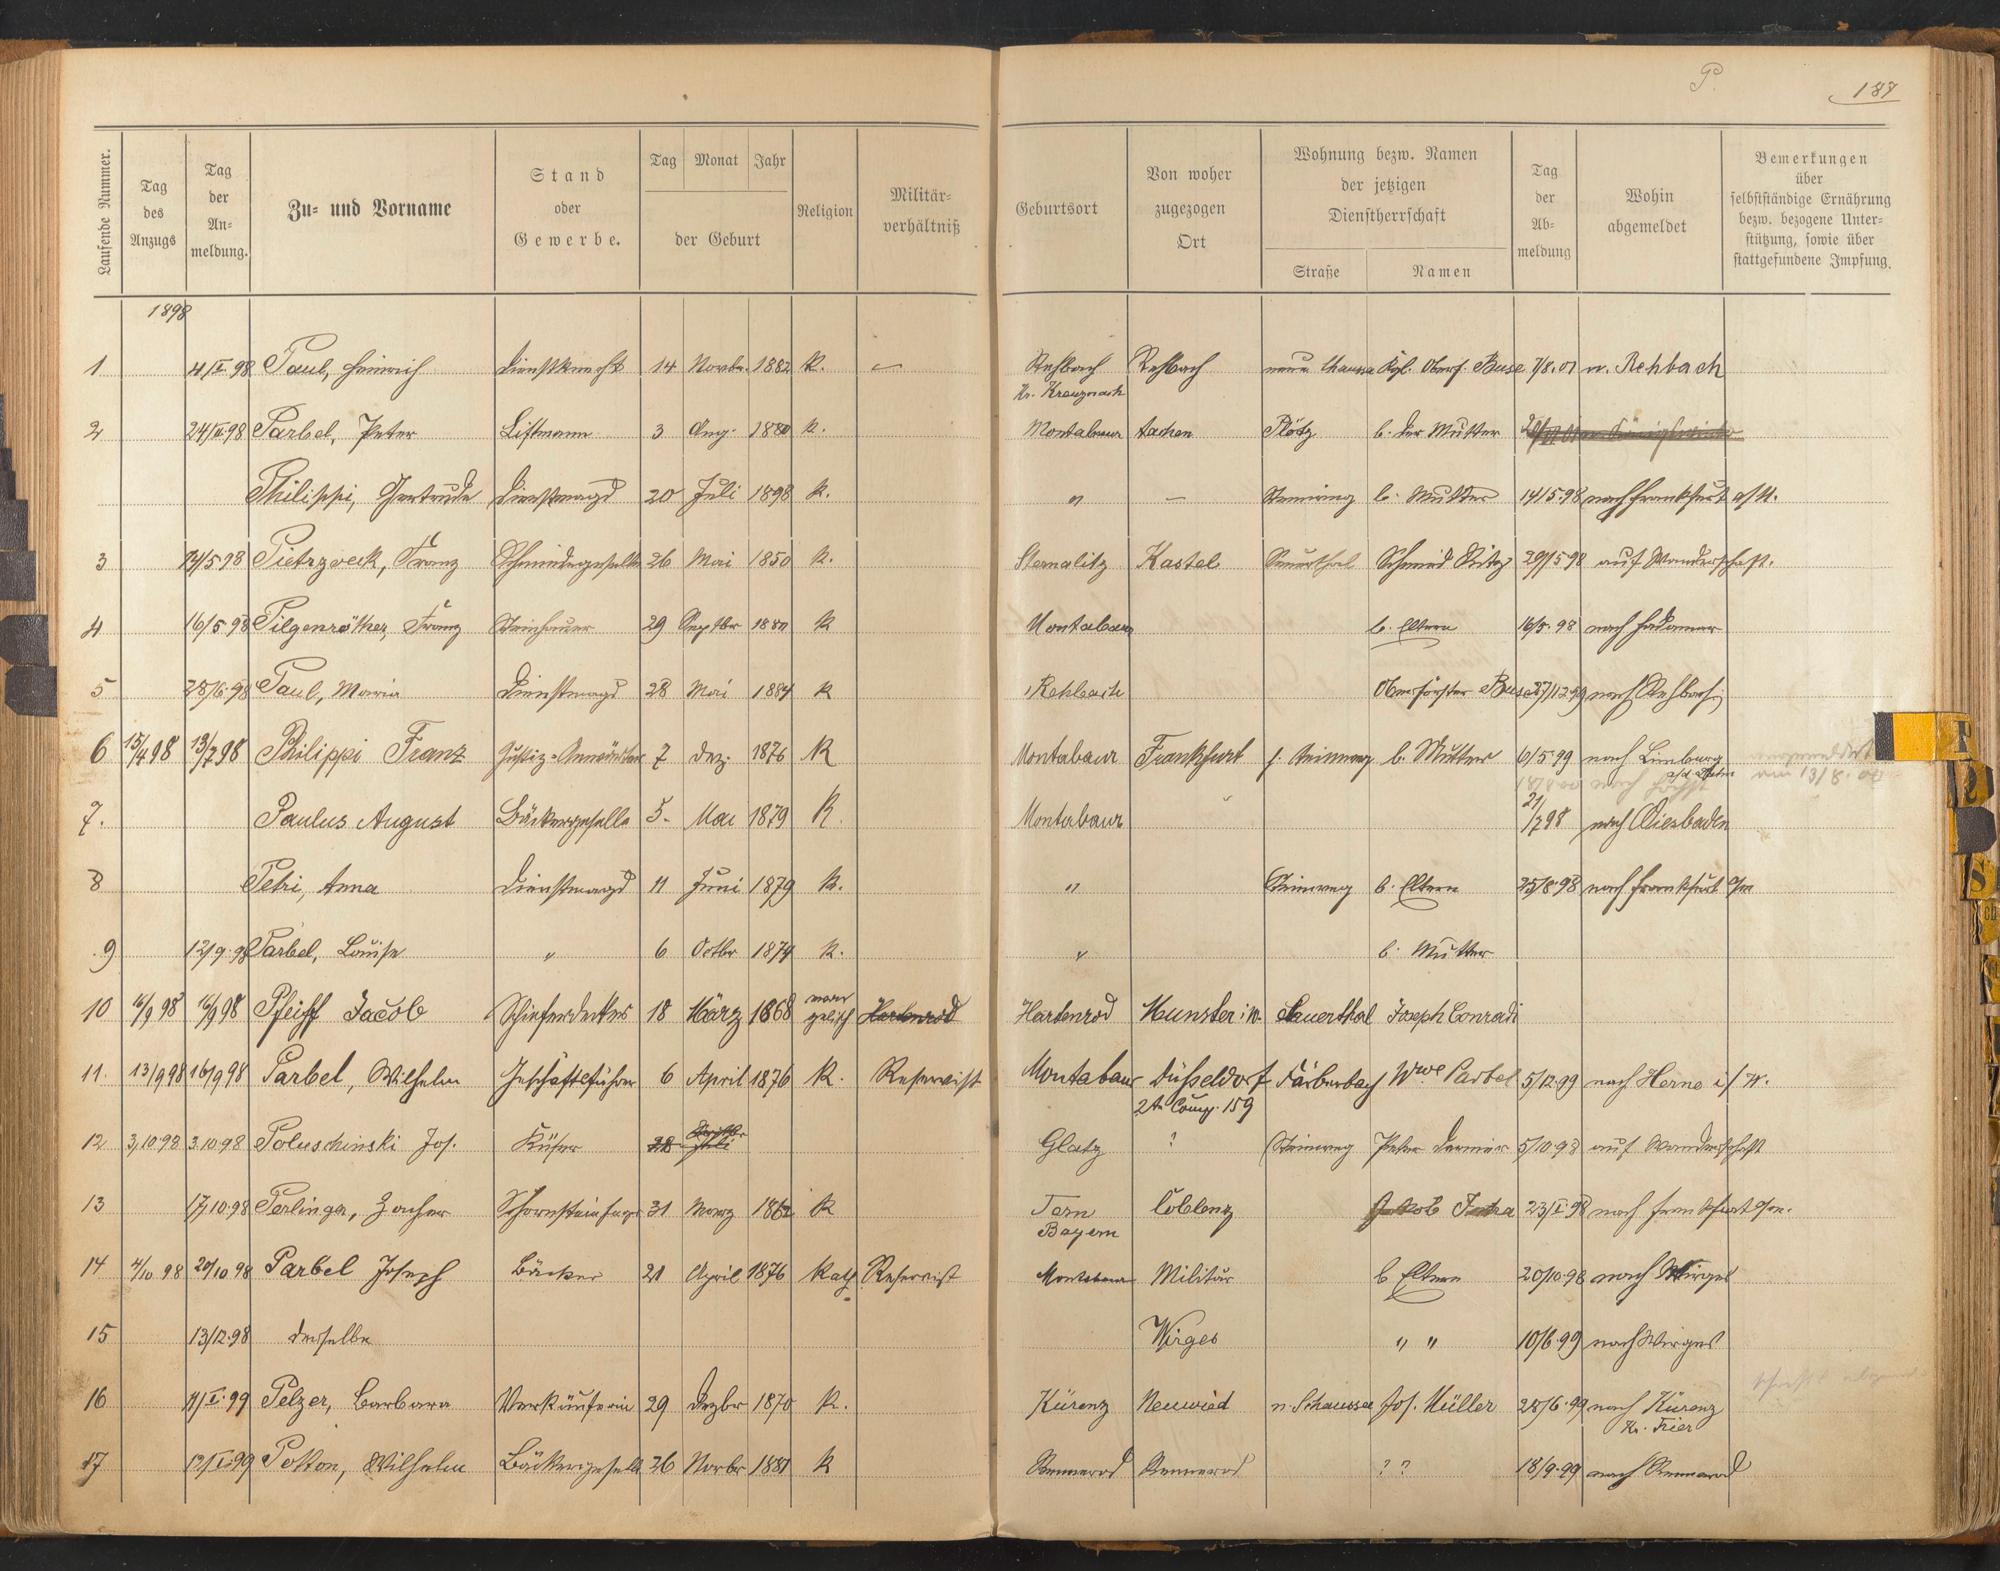 P. 187
Laufende Nummer. Tag des Anzugs Tag der An-meldung. Zu- und Vorname Stand oder Gewerbe. Tag Monat Jahr der Geburt Religion Militär-verhältniß Geburtsort Von woher zugezogen Ort Wohnung bezw. Namen der jetzigen Dienstherrschaft Straße Namen Tag der Ab-meldung Wohin abgemeldet Bemerkungen über selbstständige Ernährung bezw. bezogene Unter-stützung, sowie über stattgefundene Impfung.
1898
1 Paul, Heinrich Dienstknecht 14 Novbr. 1882 K. — Rehbach Kr. Kreuznach Rehbach neue Chaussee Kgl. Oberf. Buse 7/8.01 n. Rehbach
2 Parbel, Peter Liftmann 3 Aug. K. Montabaur Aachen Plötz b. der Mutter
Philippi, Gertrude Dienstmagd 20 Juli 1898 K. " — Steinweg b. Mutter 14/5.98 nach Frankfurt a/M.
3 Franz Schmiedegeselle 26 Mai 1850 K. Sternalitz Kastel Sauerthal Schmied 29/5 98 auf Wanderschaft.
4 16/5.98 Pilgenröther, Franz Steinhauer 29 Septbr K Montabaur b. Eltern 16/5.98 nach Hadamar
5 28/6.98 Paul, Maria Dienstmagd 28 Mai 1884 K Rehbach Oberförster Buse 27/12.99 nach Rehbach
6 15/4 98 13/7 98 Philippi Franz Justiz-Anwärter 7 Dez. 1876 K Montabaur Frankfurt Steinweg b. Mutter 6/5 99 nach Limburg
am 13/8.
7. Paulus August Bäckergeselle 5. Mai 1879 K. Montabaur 21/7 98 nach Wiesbaden
8 Petri, Anna Dienstmagd 11 Juni 1879 K. " Steinweg b. Eltern 25/8.98 nach Frankfurt a/m
9 12/9.98 Parbel, Louise " 6 Octbr 1874 K. " b. Mutter
10 16/9 98 16/9 98 Pfeiff Jacob Schieferdecker 18 März 1868 evangelisch Hartenrod Hartenrod Munster i W. Sauerthal Joseph Conradi
11. 13/9 98 16/9 98 Parbel, Wilhelm Geschäftsführer 6 April 1876 K. Reservist Montabaur Düsseldorf 2te Comp. 159 Färberbach Wwe Parbel 5/12.99 nach Herne i/W.
12 3/10.98 3.10.98 Poluschinski Jos. Küfer 28 Juli Glatz ? Steinweg Peter 5/10.98 auf Wanderschaft
13 17/10.98 Perlinger, Schornsteinfeger 31 Maerz 1862 K Bayern Coblenz Jakob nach Frankfurt a/m.
14 4/10 98 20/10 98 Parbel Joseph Bäcker 21 April 1876 Kath. Reservist Montabaur Militär b Eltern 20/10.98 nach Wirges
15 13/12.98 derselbe Wirges " " 10/6.99 nach Wirges
16 Pelzer, Barbara Verkäuferin 29 Dezbr 1870 K. Kürenz Neuwied n. Schaussee Jos. Müller 28/6.99 nach Kürenz Kr. Trier
17 Wilhelm Bäckergeselle 26 Novbr K Rennerod Rennerod ? ? 18/9.99 nach Rennerod